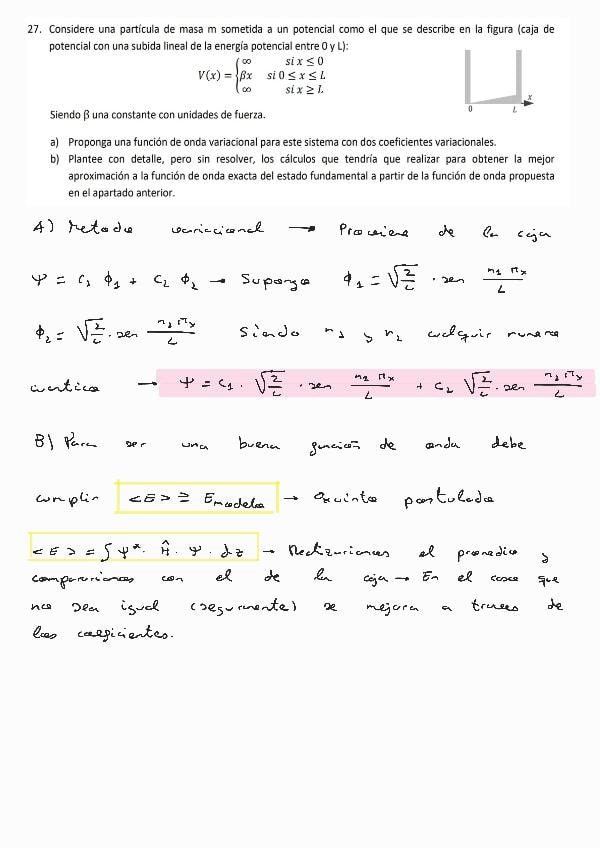 27. Considere una partícula de masa m sometida a un potencial como el que se describe en la figura (caja de
potencial con una subida lineal de la energía potencial entre 0 y L):
V(x) = { ∞ si x ≤ 0
βx si 0 ≤ x ≤ L
∞ si x ≥ L
0 L x
Siendo β una constante con unidades de fuerza.
a) Proponga una función de onda variacional para este sistema con dos coeficientes variacionales.
b) Plantee con detalle, pero sin resolver, los cálculos que tendría que realizar para obtener la mejor
aproximación a la función de onda exacta del estado fundamental a partir de la función de onda propuesta
en el apartado anterior.
A) Metodo variacional → Proviene de la caja
Ψ = C₁ ϕ₁ + C₂ ϕ₂ → Supongo ϕ₁ = √(2/L) · sen n₁πx/L
ϕ₂ = √(2/L) · sen n₂πx/L Siendo n₁ y n₂ cualquir numero
cuantico → Ψ = C₁ · √(2/L) · sen n₁πx/L + C₂ √(2/L) · sen n₂πx/L
B) Para ser una buena funcion de onda debe
cumplir <E> ≥ Emodelo → Quinto postulado
<E> = ∫ Ψ* · Ĥ · Ψ · dz → Realizariamos el promedio y
compararíamos con el de la caja → En el caso que
no sea igual (seguramente) se mejora a traves de
los coeficientes.